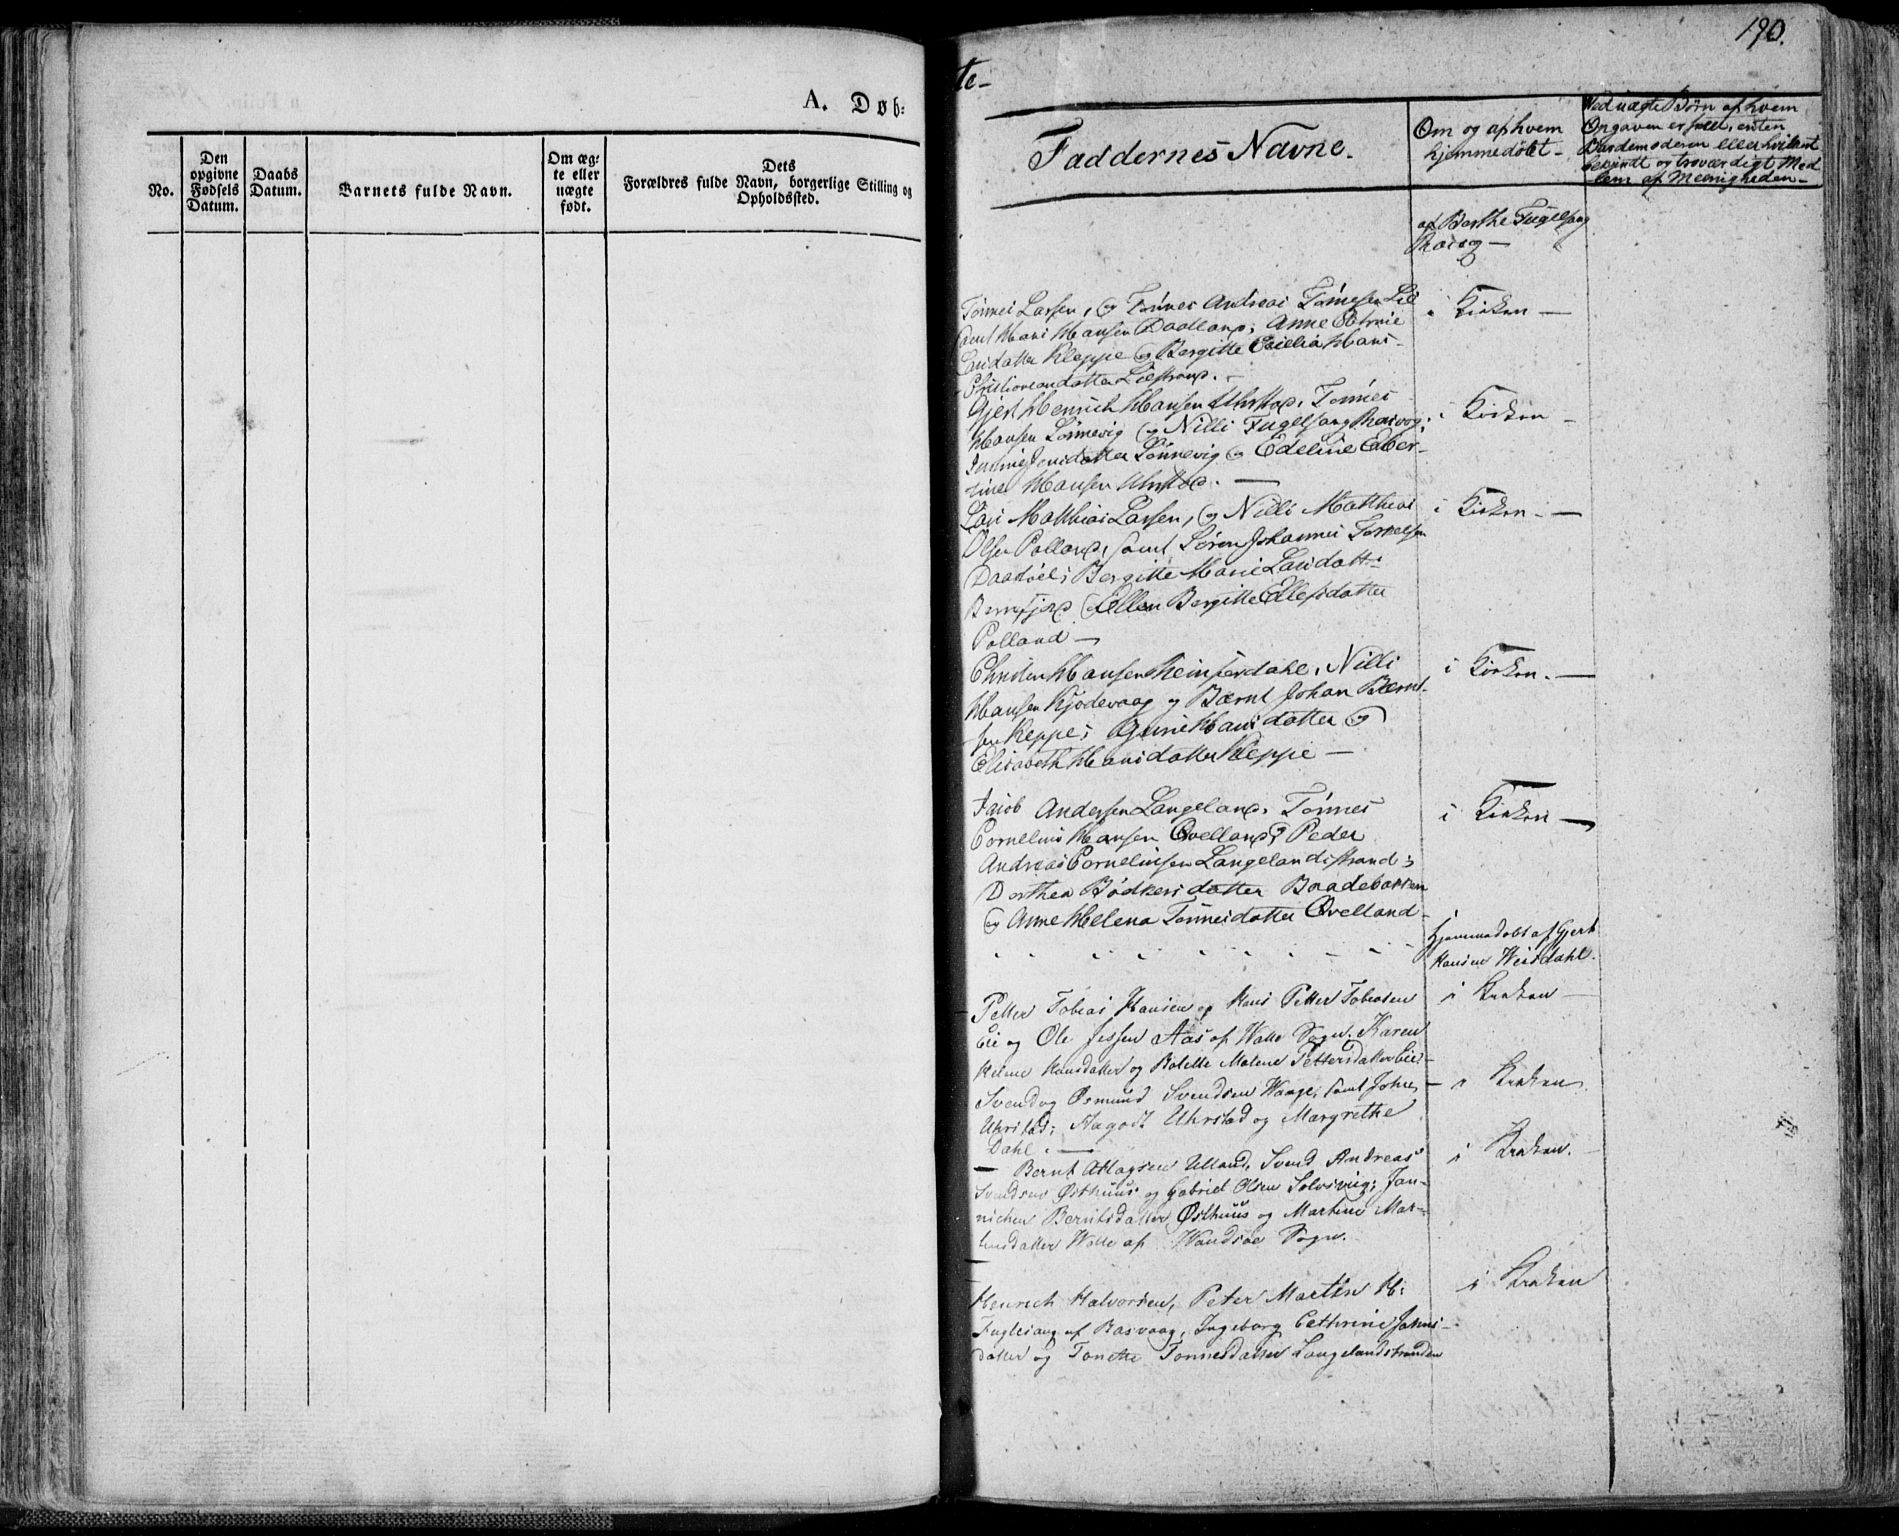 A. Døb:
No.
Den opgivne Fødsels Datum.
Daabs Datum.
Barnets fulde Navn.
Om æg-te eller uægte født.
Dets Forældres fulde Navn, borgerlige Stilling og Opholdssted.
190.
te-
Faddernes Navne.
Om og af hvem hjemmedøbt-
Ved uægte Børn af hvem
Opgaven er skeet, enten
Jordemoderen eller hvilket
bekiendt og troværdigt Med
lem af Meenigheden-
af Berthe Fugelsang
Rasvog -
Tønnes Larsen, og Tønnes Andreas Tønnesen Lil
samt Hans Hansen Daaland; Anne
Larsdatter Kleppe og Bergitte Cecilia Hans
Christiansdatter
i Kirken -
Gjert Henrich Hansen Uhrstad, Tønnes
Hansen Lønnevig og Nilli Fugelsang Rasvog;
Jensdatter Lønnevig og Edeline Eber-
tine Hansen Uhrstad. -
i Kirken -
Lars Mathias Larsen, og Nilli Mathias
Olsen Polland, samt Søren Johannes Torkelsen
Bergitte Marie Larsdatt:
Bernefjord og Ellen Bergitte Ellefsdatter
Polland -
i Kirken - -
Christen Hansen Nilli
Hansen Kjødevaag og Bærnt Johan Bernt-
sen Keppe; Gurie Hansdatter og
Elisabeth Hansdatter Kleppe -
i Kirken. -
Jacob Andersen Langeland, Tønnes
Cornelius Hansen Øvelland, Peder
Andreas Corneliusen Langelandsstrand;
Dorthea Bødkersdatter Baadebakken
og Anne Helena Tønnesdatter Øvelland -
i Kirken -
hjemmedøbt af Gjert
Hansen Weisdahl.
Petter Tobias Hansen og Hans Petter Tobiasen
Eie og Ole Jessen Aas af Walle Sogn. Karen
Helene Hansdatter og Bolette Malene Pettersdatter Eie -
i Kirken -
Svend og Osmund Svendsen Waage, samt John
Uhrstad; Aagodt Uhrstad og Margrethe
Dahl. -
- i Kirken.
- Bernt Atlagsen Ulland, Svend Andreas
Svendsen Østhuus og Gabriel Olsen Solvsvig; Jan-
nichen Berntsdatter Østhuus og Martine Mar-
tinsdatter Walle af Sogn.
i Kirken.
Henrich Halvorsen, Peter Martin H:
Fuglesang af Rasvaag, Ingeborg Cathrine Johns-
datter og Tonette Tønnesdatter Langelandstranden
i Kirken